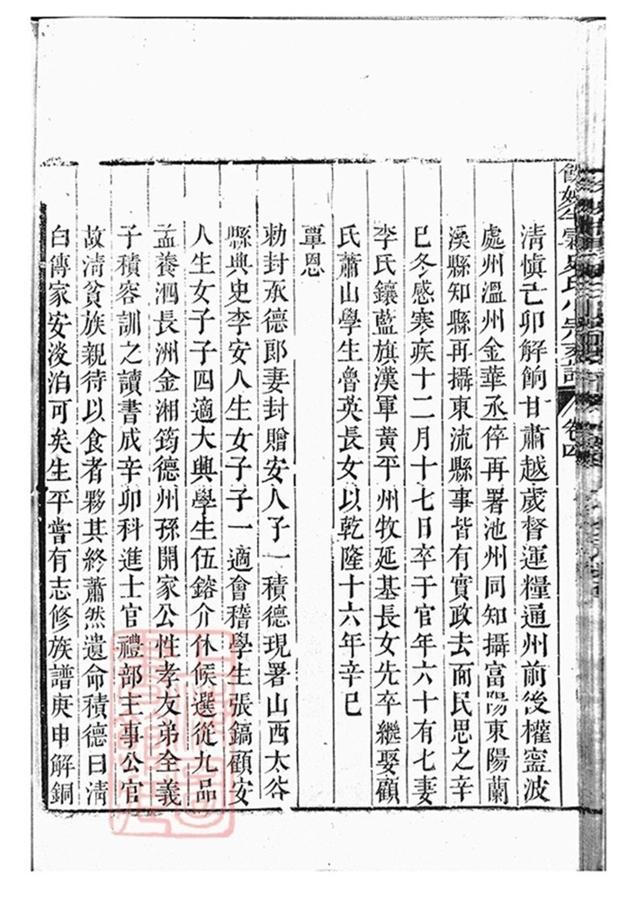 清慎亡卯解餉甘肅越歲督運糧通州前後權寧波
處州溫州金華丞倅再署池州同知攝富陽東陽蘭
溪縣知縣再攝東流縣事皆有實政去而民思之辛
巳冬感寒疾十二月十七日卒于官年六十有七妻
李氏鑲藍旗漢軍黃平州牧延基長女先卒繼娶顧
氏蕭山學生魯英長女以乾隆十六年辛巳
覃恩
勅封承德郎妻封贈安人子一積德現署山西太谷
縣典史李安人生女子子一適會稽學生張鎬顧安
人生女子子四適大興學生伍鎔介休候選從九品
孟養泗長洲金湘筠德州孫開家公性孝友弟全義
子積容訓之讀書成辛卯科進士官禮部主事公官
故清貧族親待以食者夥其終蕭然遺命積德曰清
白傳家安淡泊可矣生平嘗有志修族譜庚申解銅
卷四